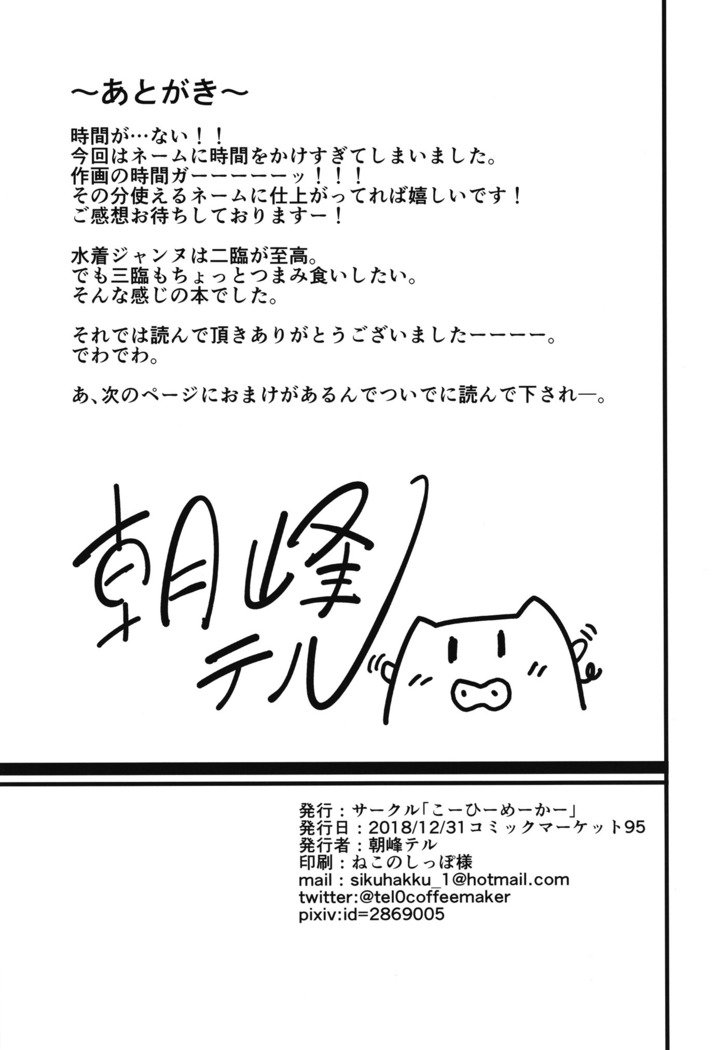 ～あとがき～
時間が…ない！！
今回はネームに時間をかけすぎてしまいました。
作画の時間ガーーーーーッ！！！
その分使えるネームに仕上がってれば嬉しいです！
ご感想お待ちしておりますー！
水着ジャンヌは二臨が至高。
でも三臨もちょっとつまみ食いしたい。
そんな感じの本でした。
それでは読んで頂きありがとうございましたーーーー。
でわでわ。
あ、次のページにおまけがあるんでついでに読んで下され―。
朝峰
テル
発行：サークル「こーひーめーかー」
発行日：2018/12/31コミックマーケット95
発行者：朝峰テル
印刷：ねこのしっぽ様
mail：sikuhakku_1@hotmail.com
twitter:@tel0coffeemaker
pixiv:id=2869005